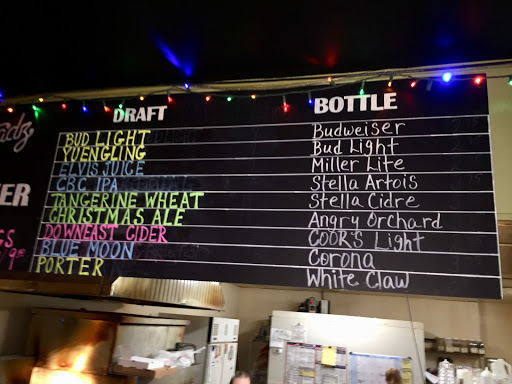 DRAFT
BOTTLE
BUD LIGHT
YUENGLING
ELVIS JUICE
CBC IPA
TANGERINE WHEAT
CHRISTMAS ALE
DOWNEAST CIDER
BLUE MOON
PORTER
Budweiser
Bud Light
Miller Lite
Stella Artois
Stella Cidre
Angry Orchard
COOR'S Light
Corona
White Claw